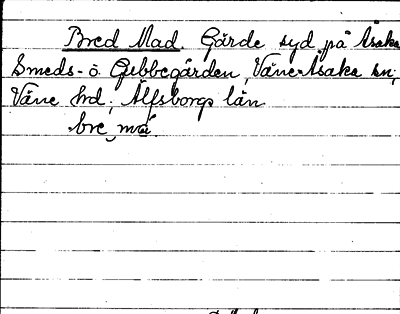 Bred Mad. Gärde syd på Åsaka
Smeds- o. Gebbegården, Väne-Åsaka sn;
Väne hrd; Älfsborgs län
bre, ma.